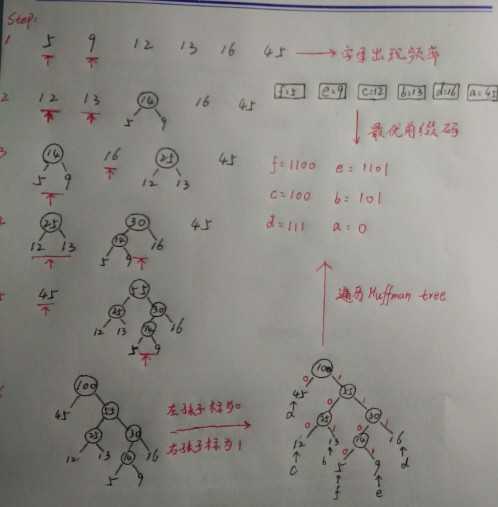 Step:
1 5 9 12 13 16 45 字母出现频率
f=5 e=9 c=12 b=13 d=16 a=45
2 12 13 14 16 45
5 9
最优前缀码
3 14 16 25 45
5 9 12 13
f=1100 e=1101
c=100 b=101
d=111 a=0
25 30 45
12 13 14 16
5 9
遍历 Huffman tree
45 55
25 30
12 13 14 16
5 9
100
45 55
25 30
12 13 14 16
5 9
左孩子标为0
右孩子标为1
100
0 1
45 55
a 0 1
25 30
0 1 0 1
12 13 14 16
c b 0 1 d
5 9
f e